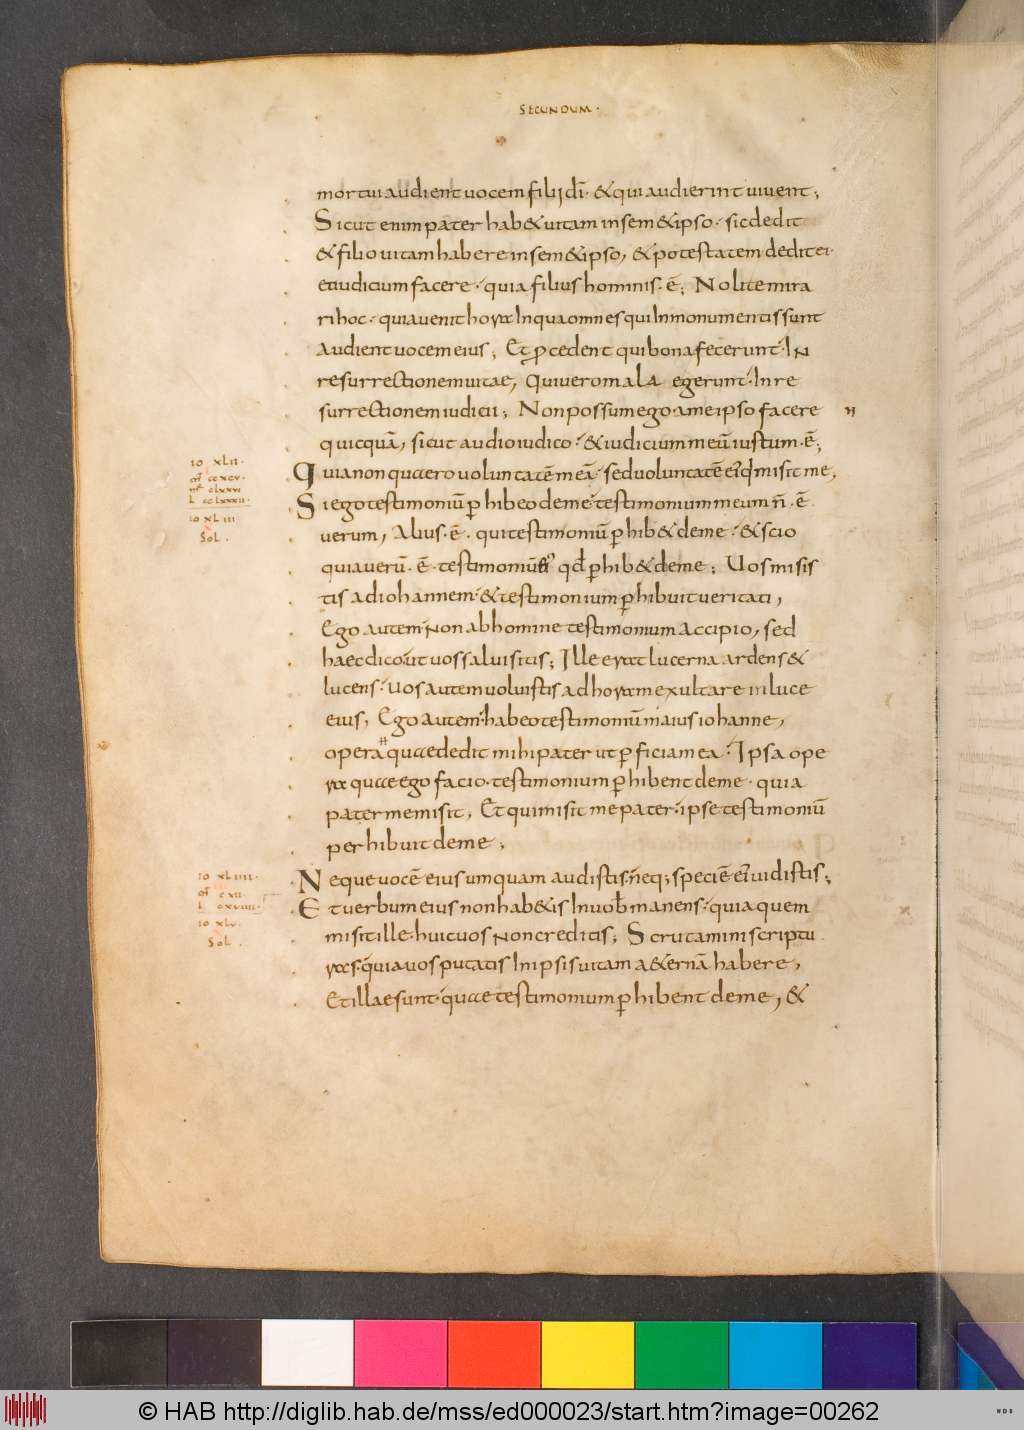 SECUNDUM·
mortui audient uocem filii dī· & qui audierint uiuent;
Sicut enim pater hab& uitam in sem&ipso· sic dedit
& filio uitam habere in sem&ipso, & potestatem dedit ei·
et iudicium facere· quia filius hominis· ē; Nolite mira
ri hoc· quia uenit hora In qua omnes qui In monumentis sunt
audient uocem eius; Et ꝓcedent qui bona fecerunt· IN
resurrectionem uitae, Qui uero mala egerunt· In re
surrectionem iudicii; Non possum ego a me ipso facere
quicquā, sicut audio iudico· & iudicium meū iustum· ē;
IO XLII·
Quia non quaero voluntatē meā· sed voluntatē eī qͥ misit me,
mͭ ccxcv·
mͬ clxxvi
L cclxxxii·
Si ego testimoniū ꝑhibeo de me· testimonium meum ñ· ē
IO XLIII
uerum, Alius· ē· qui testimoniū ꝑhib& de me· & scio
Sol·
quia uerū· ē· testimoniū qđ ꝑhib& de me; Uos misis
tis ad iohannem· & testimonium ꝑhibuit ueritati,
Ego autem Non ab homine testimonium accipio, sed
haec dico ut uos salui sitis; Ille erat lucerna ardens &
lucens· Uos autem uoluistis ad horam exultare in luce
eius, Ego autem habeo testimoniū maius iohanne,
opera quae dedit mihi pater ut ꝑficiam ea· Ipsa ope
ra quae ego facio· testimonium ꝑhibent de me· quia
pater me misit, Et qui misit me pater· ipse testimoniū
perhibuit de me;
IO XLIIII·
Neque uocē eius umquam audistis· neq; speciē eī uidistis;
mͭ cxii·
L cxviiii·
Et uerbum eius non hab&is In uoƀ manens· quia quem
IO XLV·
misit ille· huic uos Non creditis; Scrutamini scriptu
Sol·
ras· quia uos putatis In ipsis uitam a&ernā habere,
Et illae sunt· quae testimonium ꝑhibent de me, &
© HAB http://diglib.hab.de/mss/ed000023/start.htm?image=00262